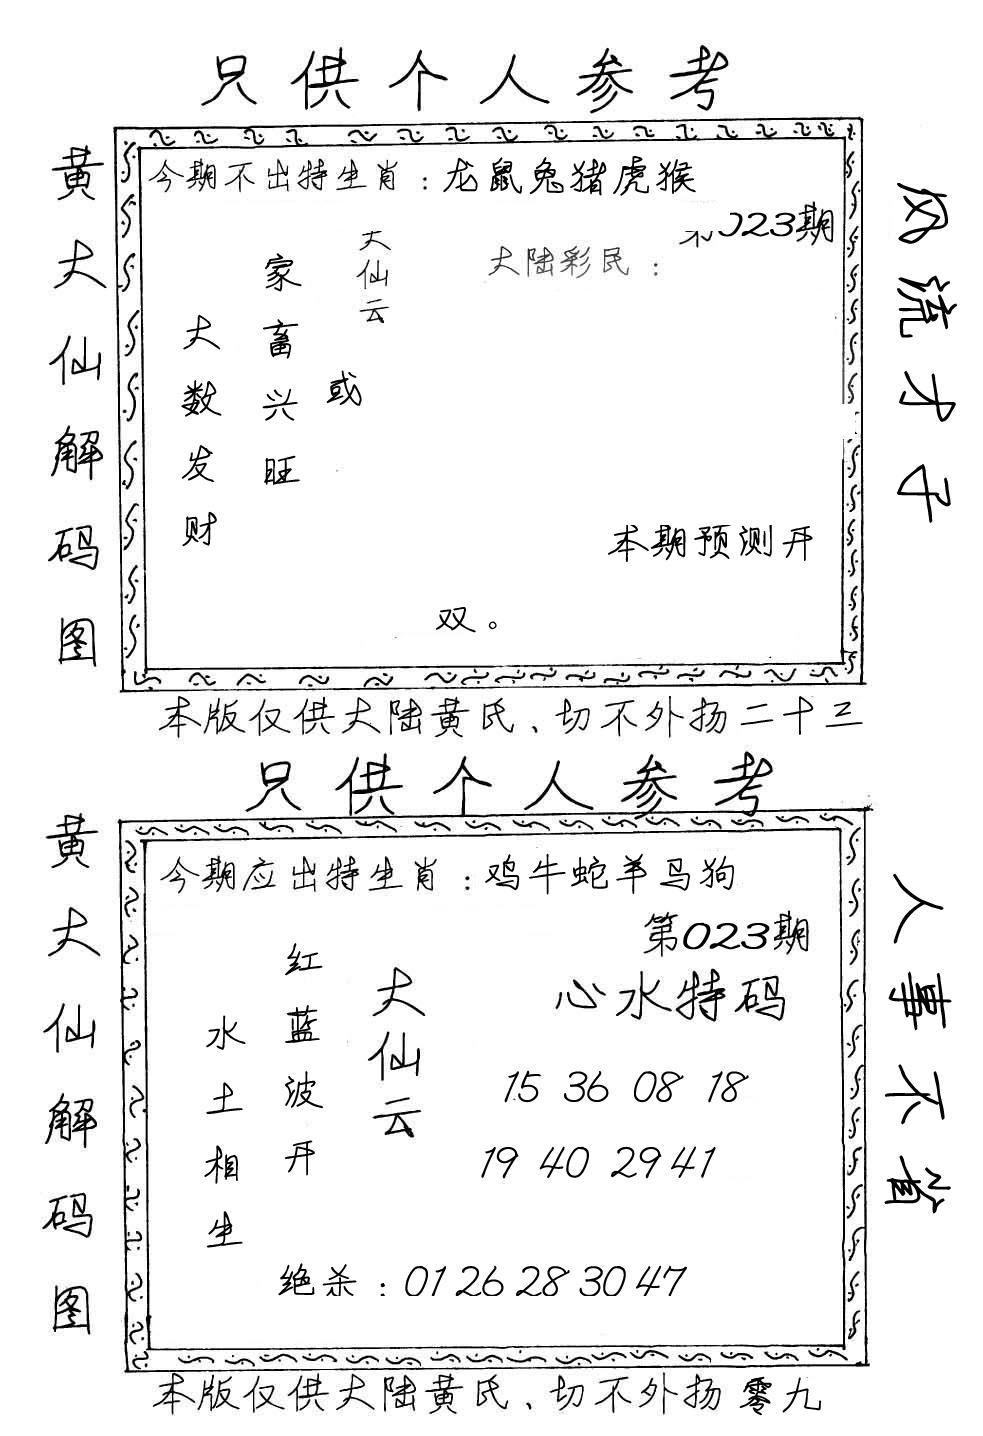 只供个人参考
黄大仙解码图
今期不出特生肖：龙鼠兔猪虎猴
023期
大陆彩民：
大仙云
家畜兴旺
或
大数发财
本期预测开
双。
风流才子
本版仅供大陆黄氏、切不外扬二十三
只供个人参考
黄大仙解码图
今期应出特生肖：鸡牛蛇羊马狗
第023期
心水特码
大仙云
红蓝波开
水土相生
15 36 08 18
19 40 29 41
绝杀：01 26 28 30 47
人事不省
本版仅供大陆黄氏、切不外扬零九